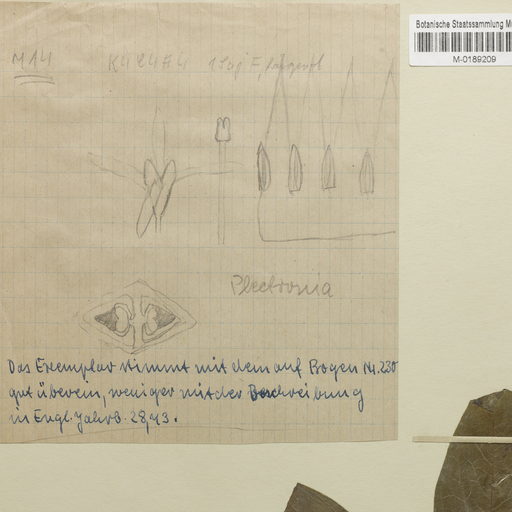 Botanische Staatssammlung Mü
M-0189209
M14
K4 C4 A4
Plectronia
Das Exemplar stimmt mit dem auf Bogen Nr. 230
gut überein, weniger mit der Beschreibung
in Engl. Jahrb. 28, 43.